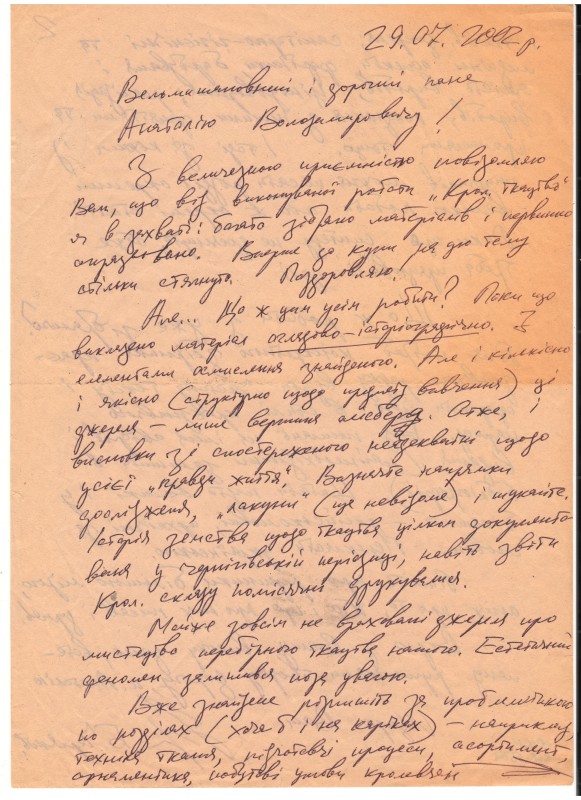 29.07.2002 р.
Вельмишановний і дорогий пане
Анаталію Володимировичу!
З величезною приємністю повідомляю
Вам, що від виконуваної роботи „Крол. ткацтва"
я в захваті: багато зібрано матеріалів і первинно
опрацьовано. Вперше до купи на цю тему
стільки стягнуто. Поздоровляю.
Але... Що ж з цим усім робити? Поки що
викладено матеріал оглядово-історіографічно. З
елементами осмислення знайденого. Але і кількісно
і якісно (структурно щодо предмету вивчення) ці
джерела – лише вершина айсберга. Отже, і
висновки зі спостереженого неадекватні щодо
усієї „правди життя". Визначте напрямки
дослідження, „лакуни" (ще невідоме) і шукайте.
Історія земства щодо ткацтва цілком документо
вана у чернігівській періодиці, навіть звіти
Крол. складу помісячні друкувалися.
Майже зовсім не враховані джерела про
мистецтво перебірного ткацтва нашого. Естетичний
феномен залишився поза увагою.
Вже знайдене розпишіть за проблематикою
по розділах (хоча б і на картках) – наприклад,
техніка ткання, підготовчі процеси, асортимент,
орнаментика, побутові умови кролевчан